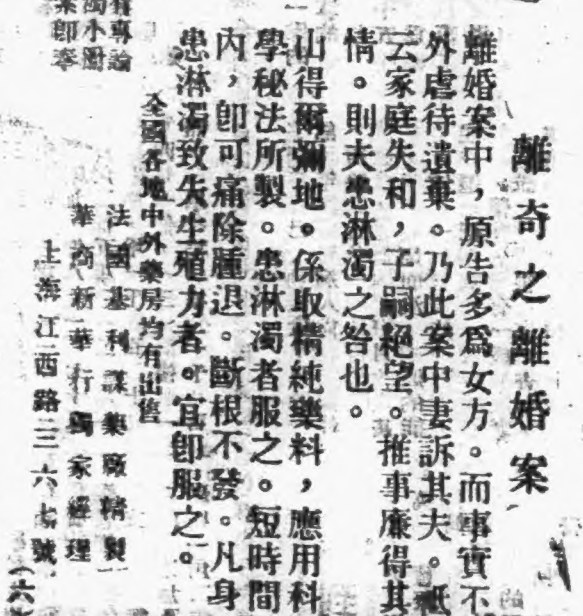 離奇之離婚案
離婚案中，原告多爲女方。而事實不
外虐待遺棄。乃此案中妻訴其夫。祇
云家庭失和，子嗣絕望。推事廉得其
情。則夫患淋濁之咎也。
山得爾彌地。係取精純藥料，應用科
學秘法所製。患淋濁者服之。短時間
內，卽可痛除腫退。斷根不發。凡身
患淋濁致失生殖力者。宜卽服之。
全國各地中外藥房均有出售
法國基利謀藥廠精製
華商新華行獨家經理
上海江西路三六七號
(六)
有專論
濁小冊
卽奉